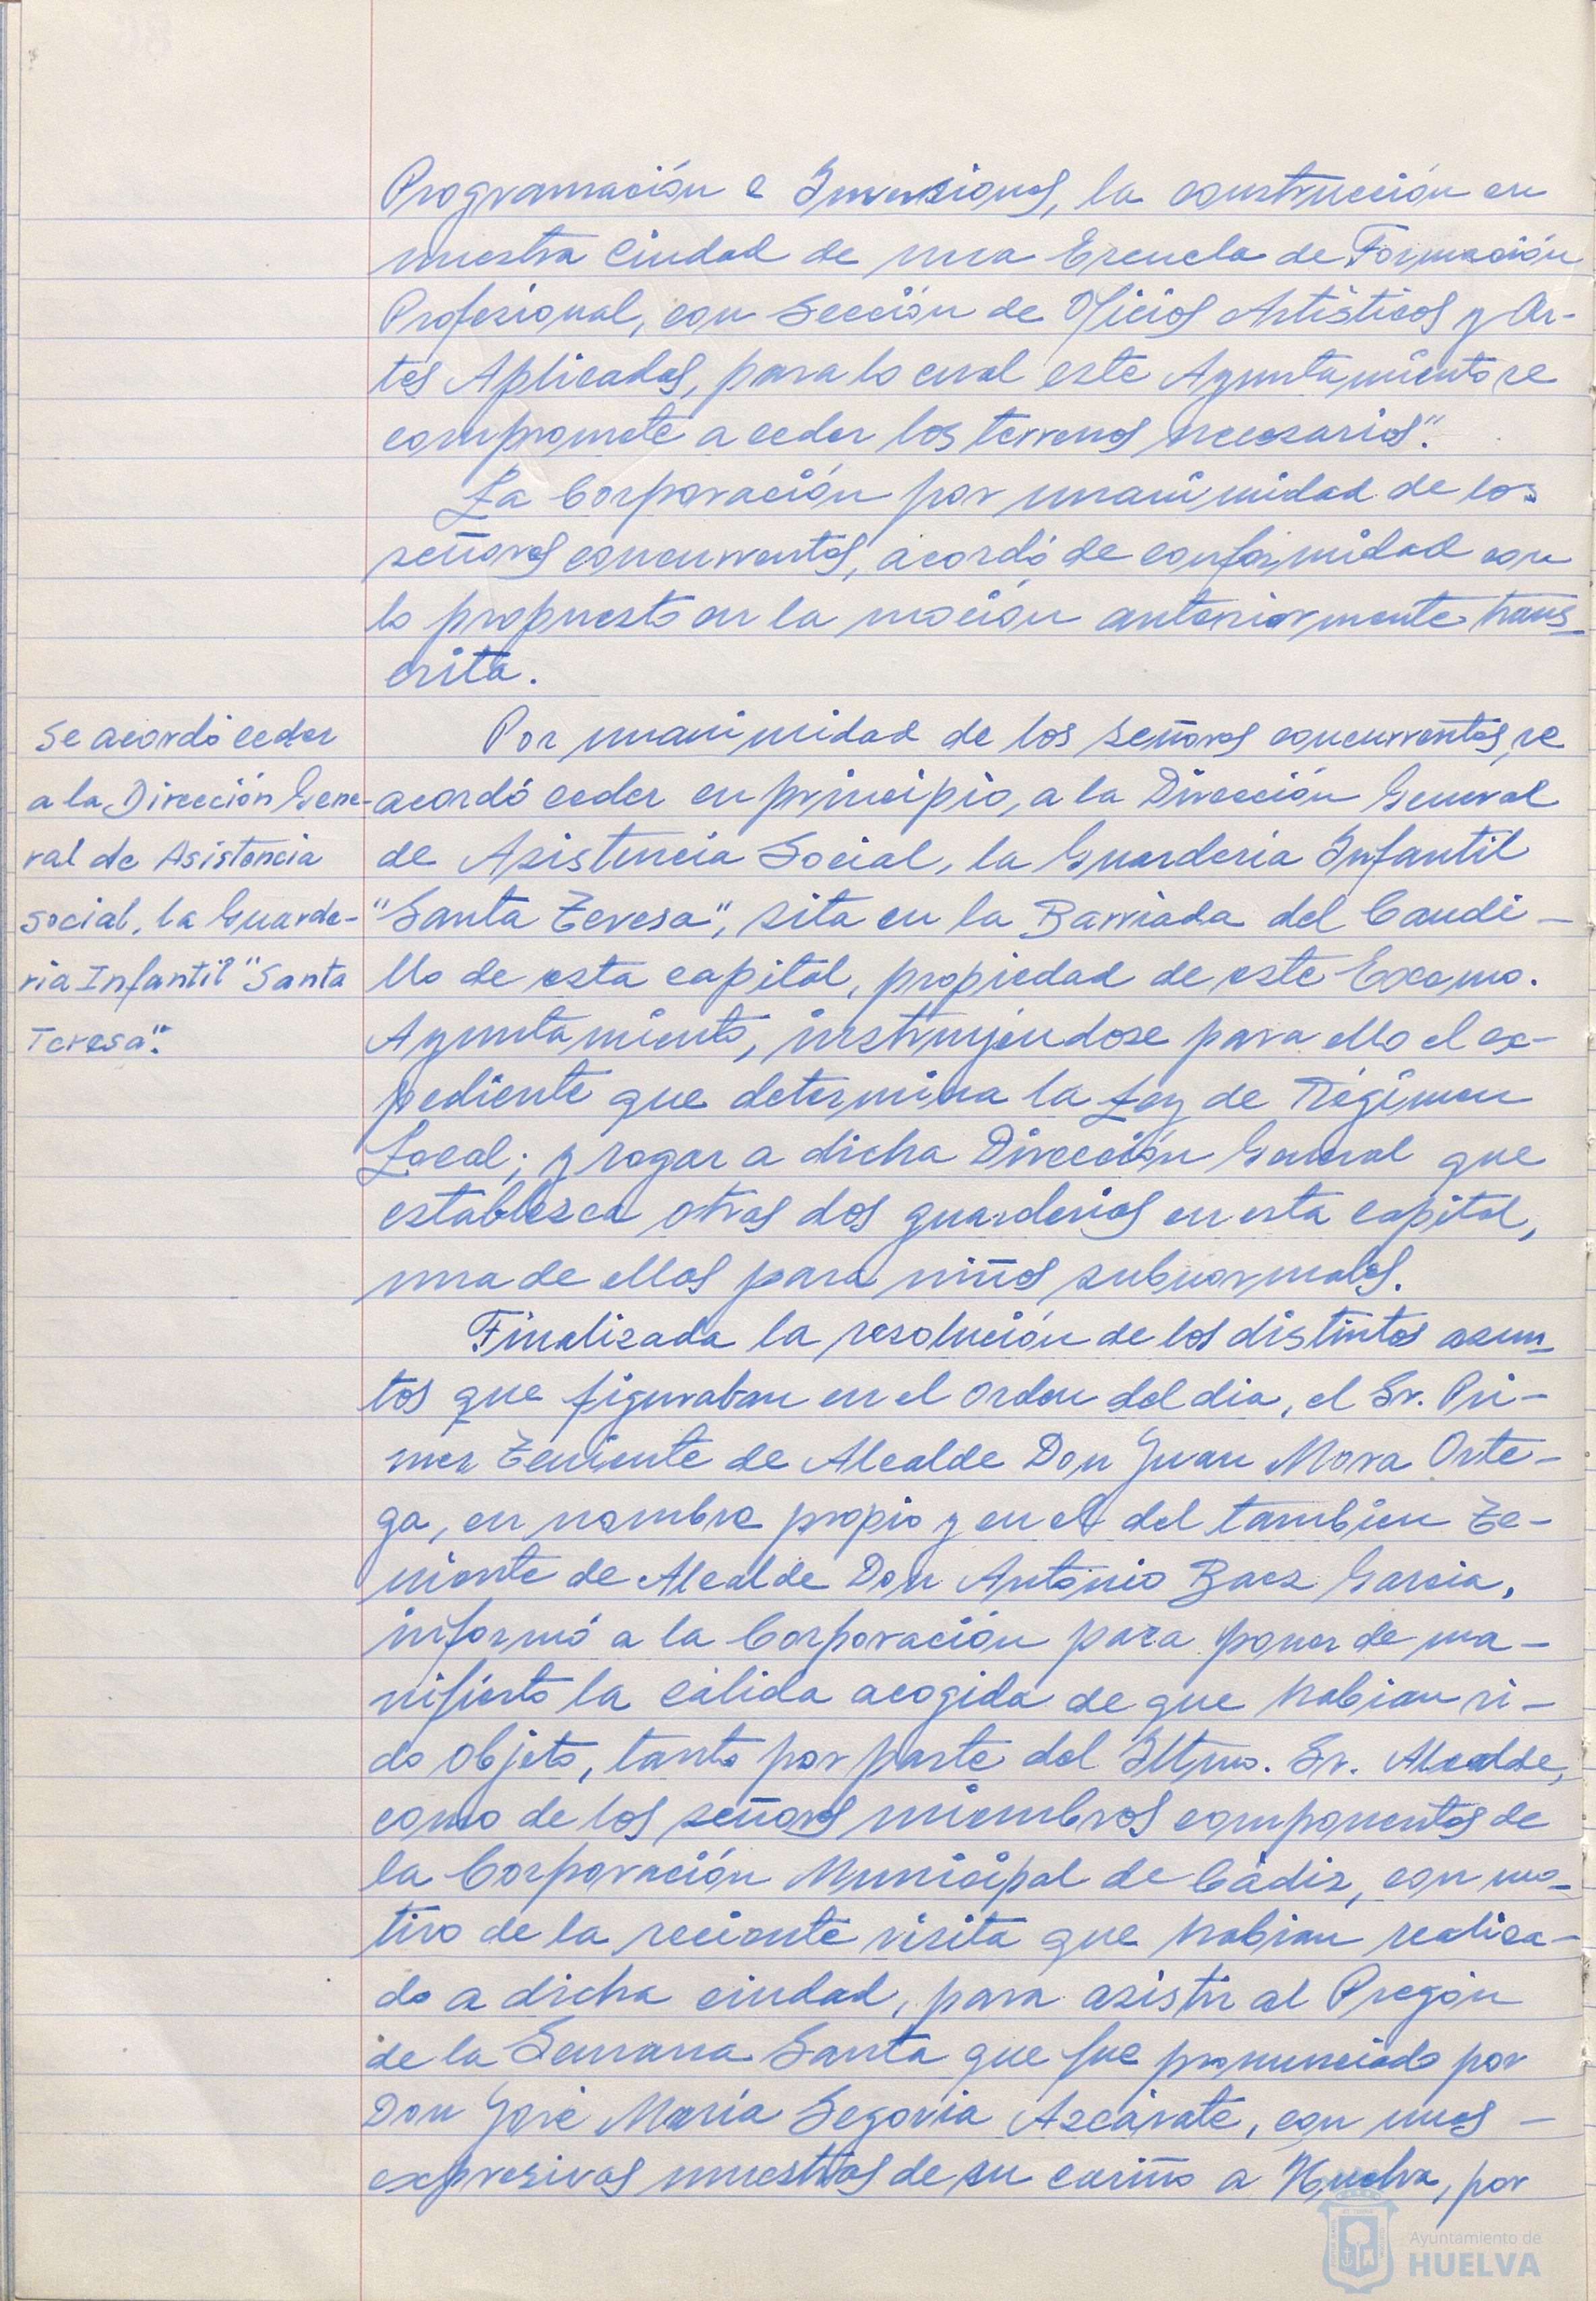 Programación e Inversiones, la construcción en
nuestra Ciudad de una Escuela de Formación
Profesional, con Sección de Oficios Artísticos y Ar-
tes Aplicadas, para lo cual este Ayuntamiento se
compromete a ceder los terrenos necesarios".
La Corporación por unanimidad de los
señores concurrentes, acordó de conformidad con
lo propuesto en la moción anteriormente trans-
crita.
Se acordó ceder
a la Dirección Gene-
ral de Asistencia
Social, la Guarde-
ria Infantil "Santa
Teresa".
Por unanimidad de los señores concurrentes, se
acordó ceder en principio, a la Dirección General
de Asistencia Social, la Guarderia Infantil
"Santa Teresa", sita en la Barriada del Caudi-
llo de esta capital, propiedad de este Excmo.
Ayuntamiento, instruyéndose para ello el ex-
pediente que determina la Ley de Régimen
Local; y rogar a dicha Dirección General que
establezca otras dos guarderias en esta capital,
una de ellas para niños subnormales.
Finalizada la resolución de los distintos asun-
tos que figuraban en el orden del dia, el Sr. Pri-
mer Teniente de Alcalde Don Juan Mora Orte-
ga, en nombre propio y en el del tambien Te-
niente de Alcalde Don Antonio Baez Garcia,
informó a la Corporación para poner de ma-
nifiesto la cálida acogida de que habian si-
do objeto, tanto por parte del Iltmo. Sr. Alcalde,
como de los señores miembros componentes de
la Corporación Municipal de Cádiz, con mo-
tivo de la reciente visita que habian realiza-
do a dicha ciudad, para asistir al Pregón
de la Semana Santa que fue pronunciado por
Don José María Segovia Azcárate, con unas -
expresivas muestras de su cariño a Huelva, por
Ayuntamiento de
HUELVA